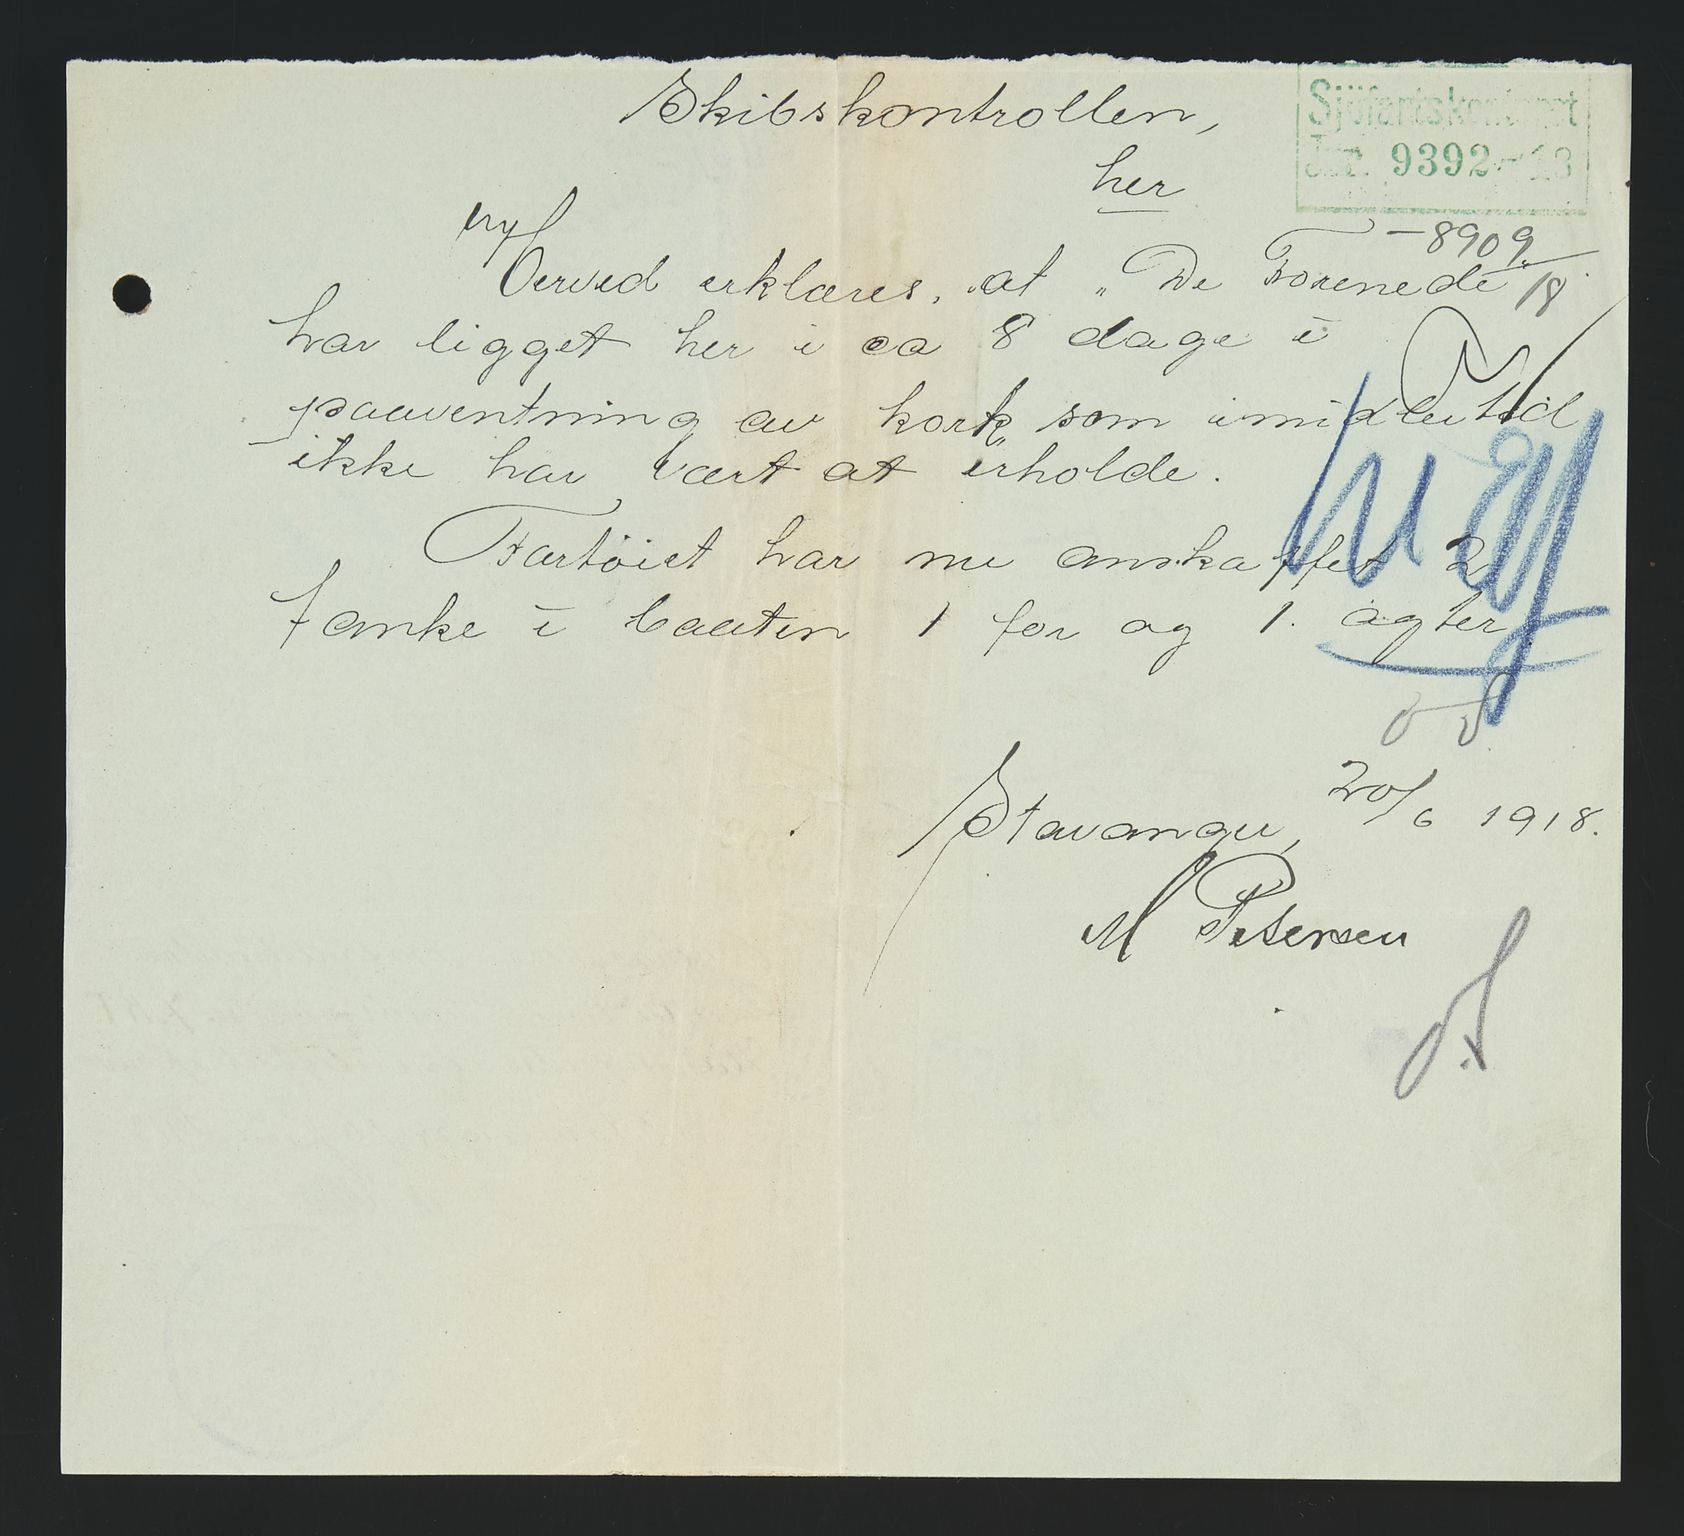 Skibskontrollen,
her
Sjöfartskontoret
Jnr. 9392 - 18
- 8909/18
Herved erklæres, at „De Forenede
har ligget her i ca 8 dage i
paaventning av kork, som imidlertid
ikke har vært at erholde.
Fartöiet har nu anskaffet 2
tanke i baaten 1 for og 1. agter
Stavanger, 20/6 1918.
M Petersen